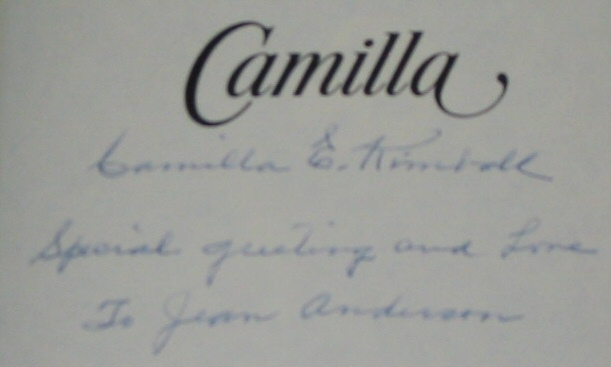 Camilla
Camilla E. Kimball
Special greeting and Love
To Jean Anderson